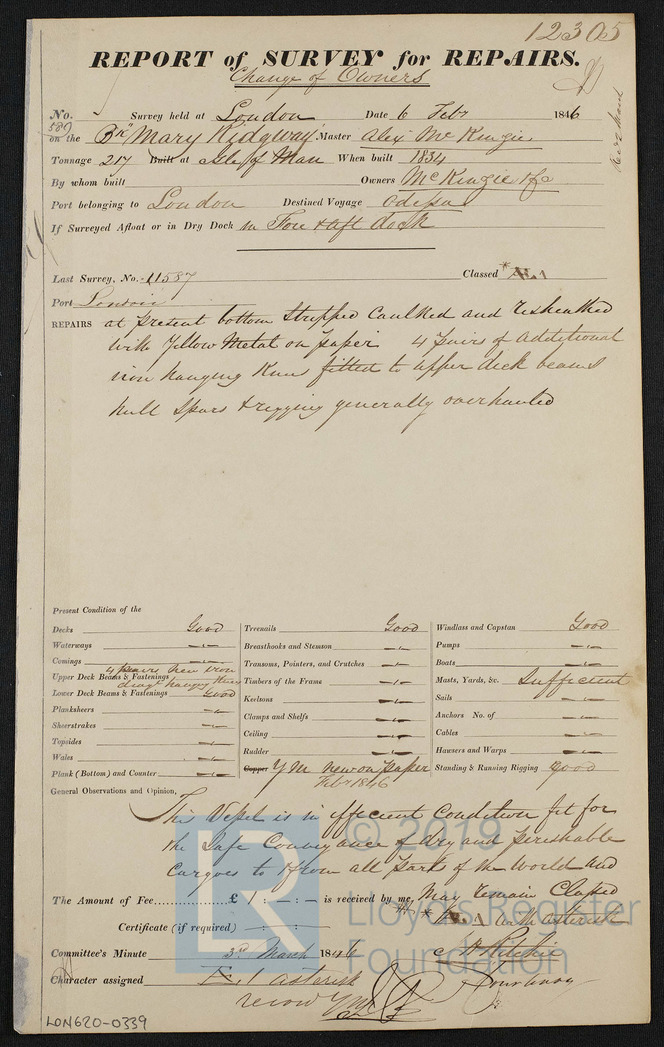 12305
REPORT of SURVEY for REPAIRS.
Change of Owners
No. 587 Survey held at London Date 6 Febr 1846
on the Bn Mary Ridgway Master Alex Mc Kinzie
Tonnage 217 Built at Isle of Man When built 1834
By whom built Owners McKinzie & Co
Port belonging to London Destined Voyage Odessa
If Surveyed Afloat or in Dry Dock in Fore & aft dock
Last Survey, No. 11587 Classed * Æ 1
Port London
REPAIRS at present bottom Stripped Caulked and resheathed
with Yellow Metal on paper 4 pairs of additional
iron hanging Knees fitted to upper deck beams
hull Spars & rigging generally overhauled
Present Condition of the
Decks Good
Waterways
Comings
Upper Deck Beams & Fastenings 4 pairs new iron diagl hanging Knees
Lower Deck Beams & Fastenings Good
Planksheers
Sheerstrakes
Topsides
Wales
Plank (Bottom) and Counter
Treenails Good
Breasthooks and Stemson
Transoms, Pointers, and Crutches
Timbers of the Frame
Keelsons
Clamps and Shelfs
Ceiling
Rudder
Copper YM new on paper
Febr 1846
Windlass and Capstan Good
Pumps
Boats
Masts, Yards, &c. Sufficient
Sails
Anchors No. of
Cables
Hawsers and Warps
Standing & Running Rigging good
General Observations and Opinion,
This Vessel is in efficient Condition fit for
the Safe Conveyance of dry and perishable
Cargoes to & from all parts of the World and
The Amount of Fee............£ 1 : - : - is received by me, May remain Classed
* Æ 1 with asterisk
Certificate (if required) - : - : -
Committee's Minute 3rd March 1846
Character assigned Æ 1 asterisk
record YM
LON620-0339
© 2019
Lloyd's Register
Foundation
LR